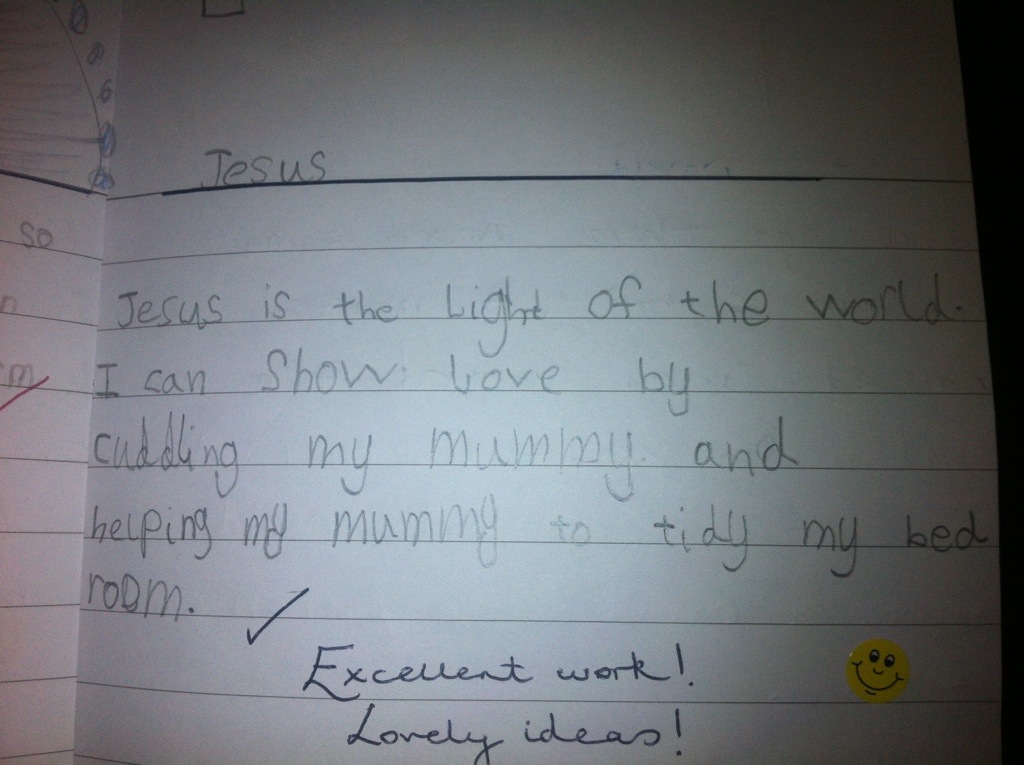 Jesus
so
Jesus is the Light of the world.
I can Show Love by
cuddling my mummy and
helping my mummy to tidy my bed
room.
Excellent work!
Lovely ideas!